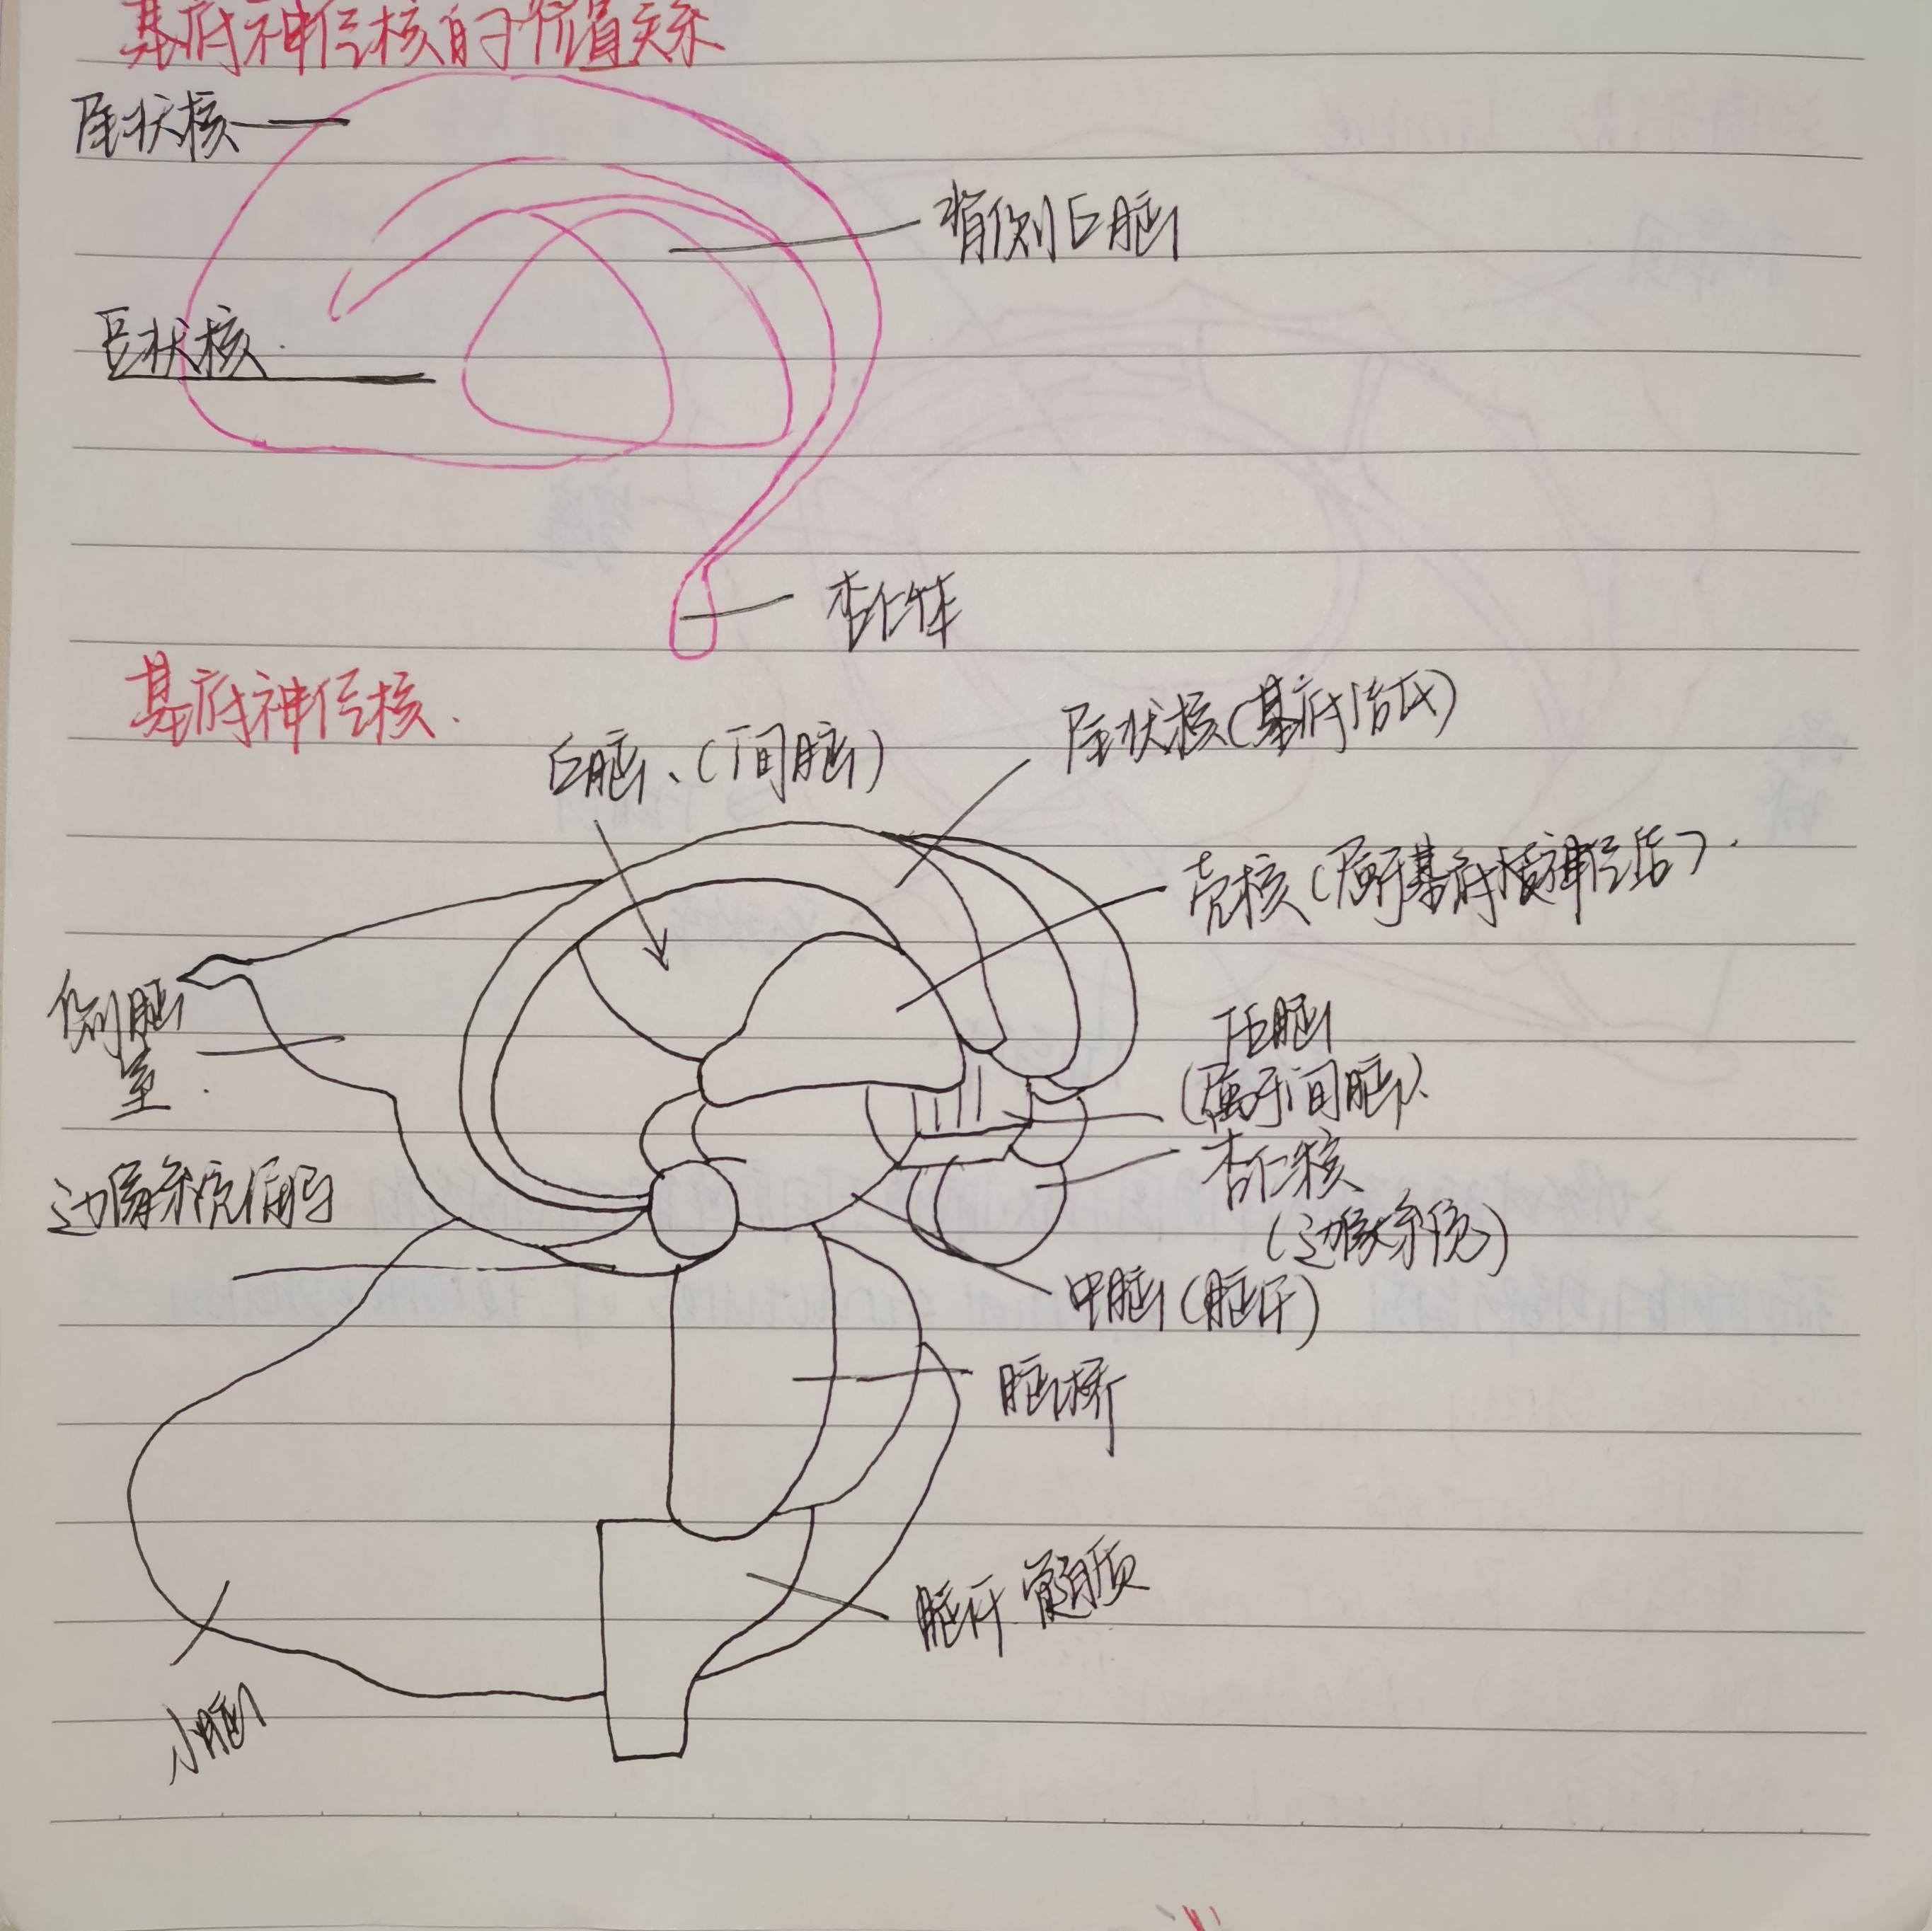 基底神经核的位置关系
尾状核
背侧丘脑
豆状核
杏仁体
基底神经核.
丘脑、(间脑)
尾状核(基底
壳核(属于基底神经结).
侧脑
室.
下丘脑
(属于间脑).
杏仁核
(边缘系统)
边缘系统
中脑(脑干)
脑桥
脑干 髓质
小脑